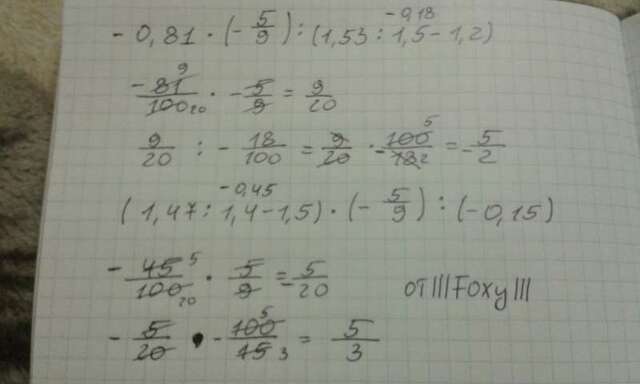 -0,18
- 0,81 · (- 5/9) : (1,53 : 1,5 - 1,2)
- 81 9 / 100 20 · - 5/9 = 9/20
9/20 : - 18/100 = 9/20 · - 100 5 / 18 2 = - 5/2
-0,45
(1,47 : 1,4 - 1,5) · (- 5/9) : (-0,15)
- 45 5 / 100 20 · 5/9 = - 5/20
от |||Foxy|||
- 5/20 · - 100 5 / 15 3 = 5/3